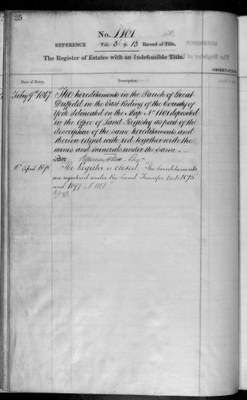 25
No. 1101
REFERENCE Vol. 3 p. 13 Record of Title.
The Register of Estates with an Indefeasible Title.
Date of Entry.
Description.
The hereditaments in the Parish of Great
Driffield in the East Riding of the County of
York delineated on the Map No 1101 deposited
in the Office of Land Registry as part of the
description of the same hereditaments and
thereon edged with red together with the
mines and minerals under the same
The Register is closed. The hereditaments
are registered under the Land Transfer Acts 1875
and 1897